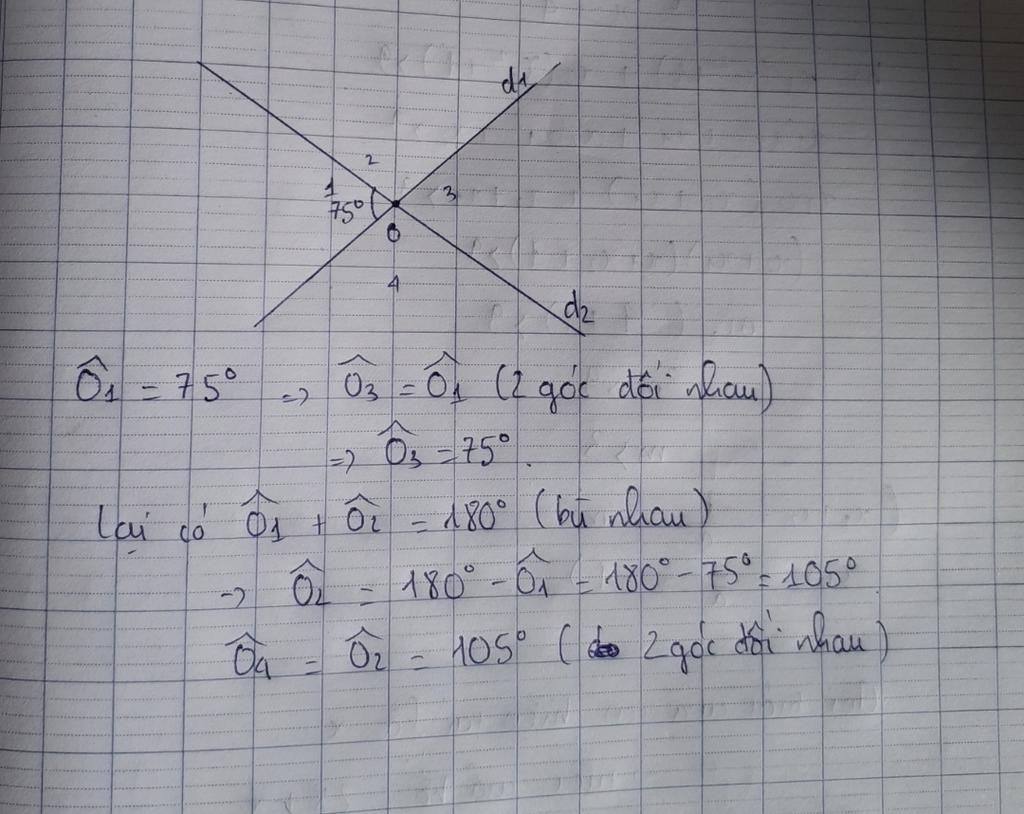 d1
2
1
75°
3
O
4
d2
Ô1 = 75° => Ô3 = Ô1 (2 góc đối nhau)
=> Ô3 = 75°.
Lại có Ô1 + Ô2 = 180° (bù nhau)
-> Ô2 = 180° - Ô1 = 180° - 75° = 105°
Ô4 = Ô2 = 105° ( 2 góc đối nhau)